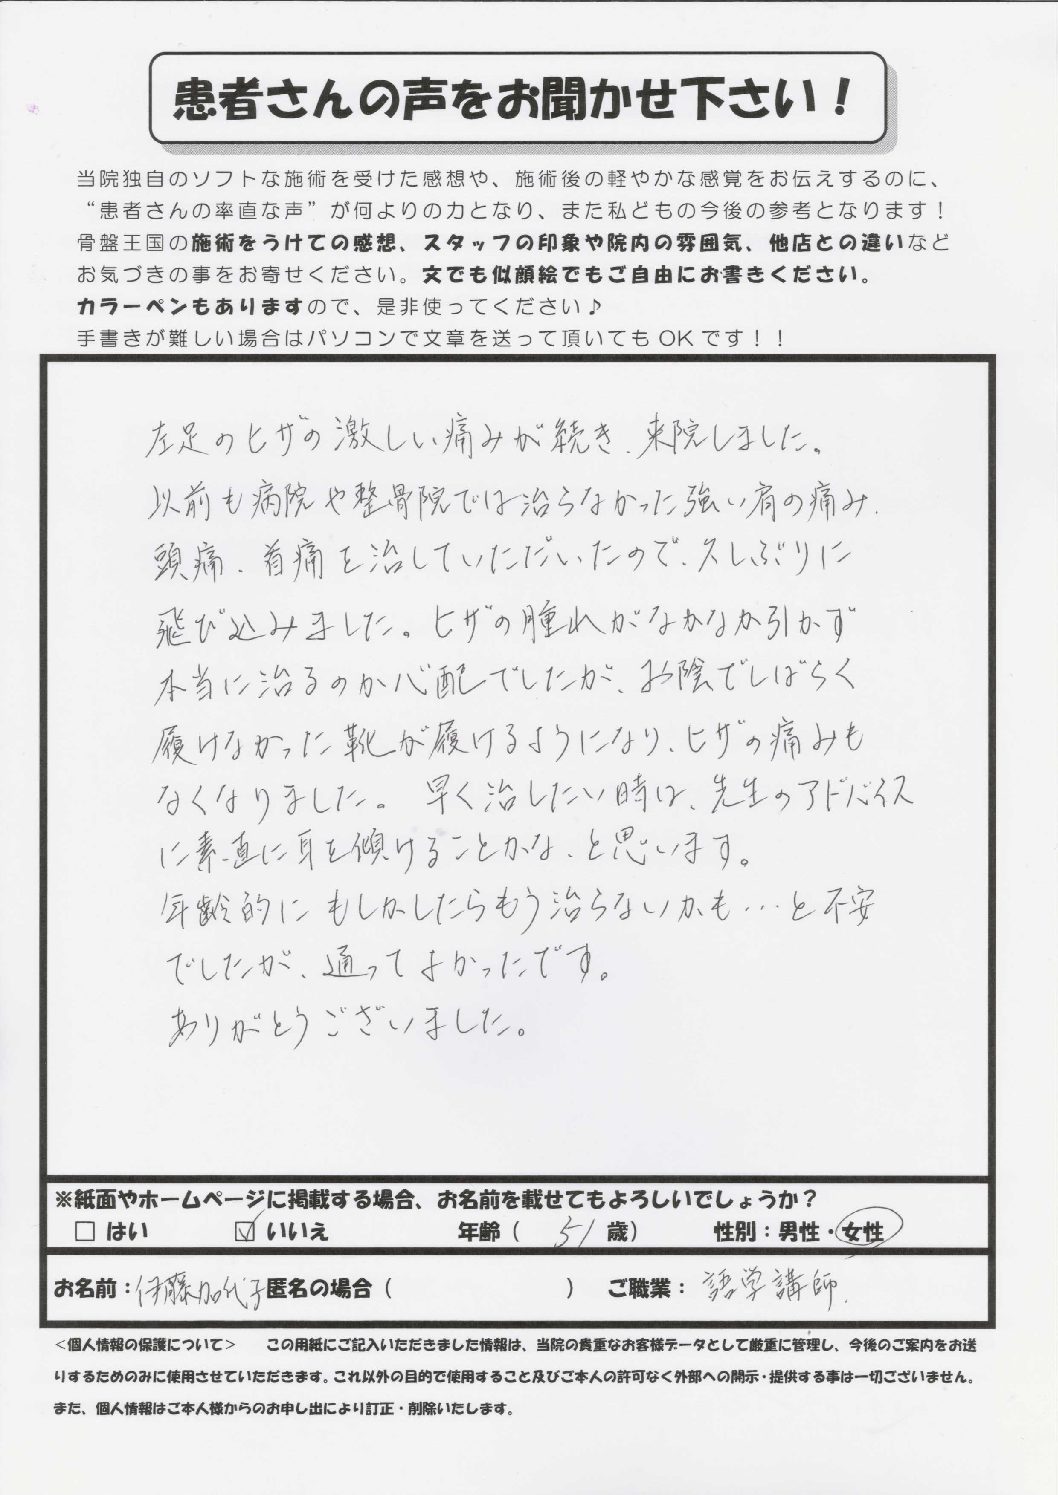 患者さんの声をお聞かせ下さい！
当院独自のソフトな施術を受けた感想や、施術後の軽やかな感覚をお伝えするのに、
“患者さんの率直な声”が何よりの力となり、また私どもの今後の参考となります！
骨盤王国の施術をうけての感想、スタッフの印象や院内の雰囲気、他店との違いなど
お気づきの事をお寄せください。文でも似顔絵でもご自由にお書きください。
カラーペンもありますので、是非使ってください♪
手書きが難しい場合はパソコンで文章を送って頂いてもOKです！！
左足のヒザの激しい痛みが続き、来院しました。
以前も病院や整骨院では治らなかった強い肩の痛み、
頭痛、首痛を治していただいたので、久しぶりに
飛び込みました。ヒザの腫れがなかなか引かず
本当に治るのか心配でしたが、お陰でしばらく
履けなかった靴が履けるようになり、ヒザの痛みも
なくなりました。早く治したい時は、先生のアドバイス
に素直に耳を傾けることかな、と思います。
年齢的にもしかしたらもう治らないかも…と不安
でしたが、通ってよかったです。
ありがとうございました。
※紙面やホームページに掲載する場合、お名前を載せてもよろしいでしょうか？
□ はい ☑ いいえ 年齢（ 51 歳） 性別：男性・女性
お名前：伊藤加代子 匿名の場合（ ） ご職業：語学講師.
＜個人情報の保護について＞ この用紙にご記入いただきました情報は、当院の貴重なお客様データとして厳重に管理し、今後のご案内をお送
りするためのみに使用させていただきます。これ以外の目的で使用すること及びご本人の許可なく外部への開示・提供する事は一切ございません。
また、個人情報はご本人様からのお申し出により訂正・削除いたします。